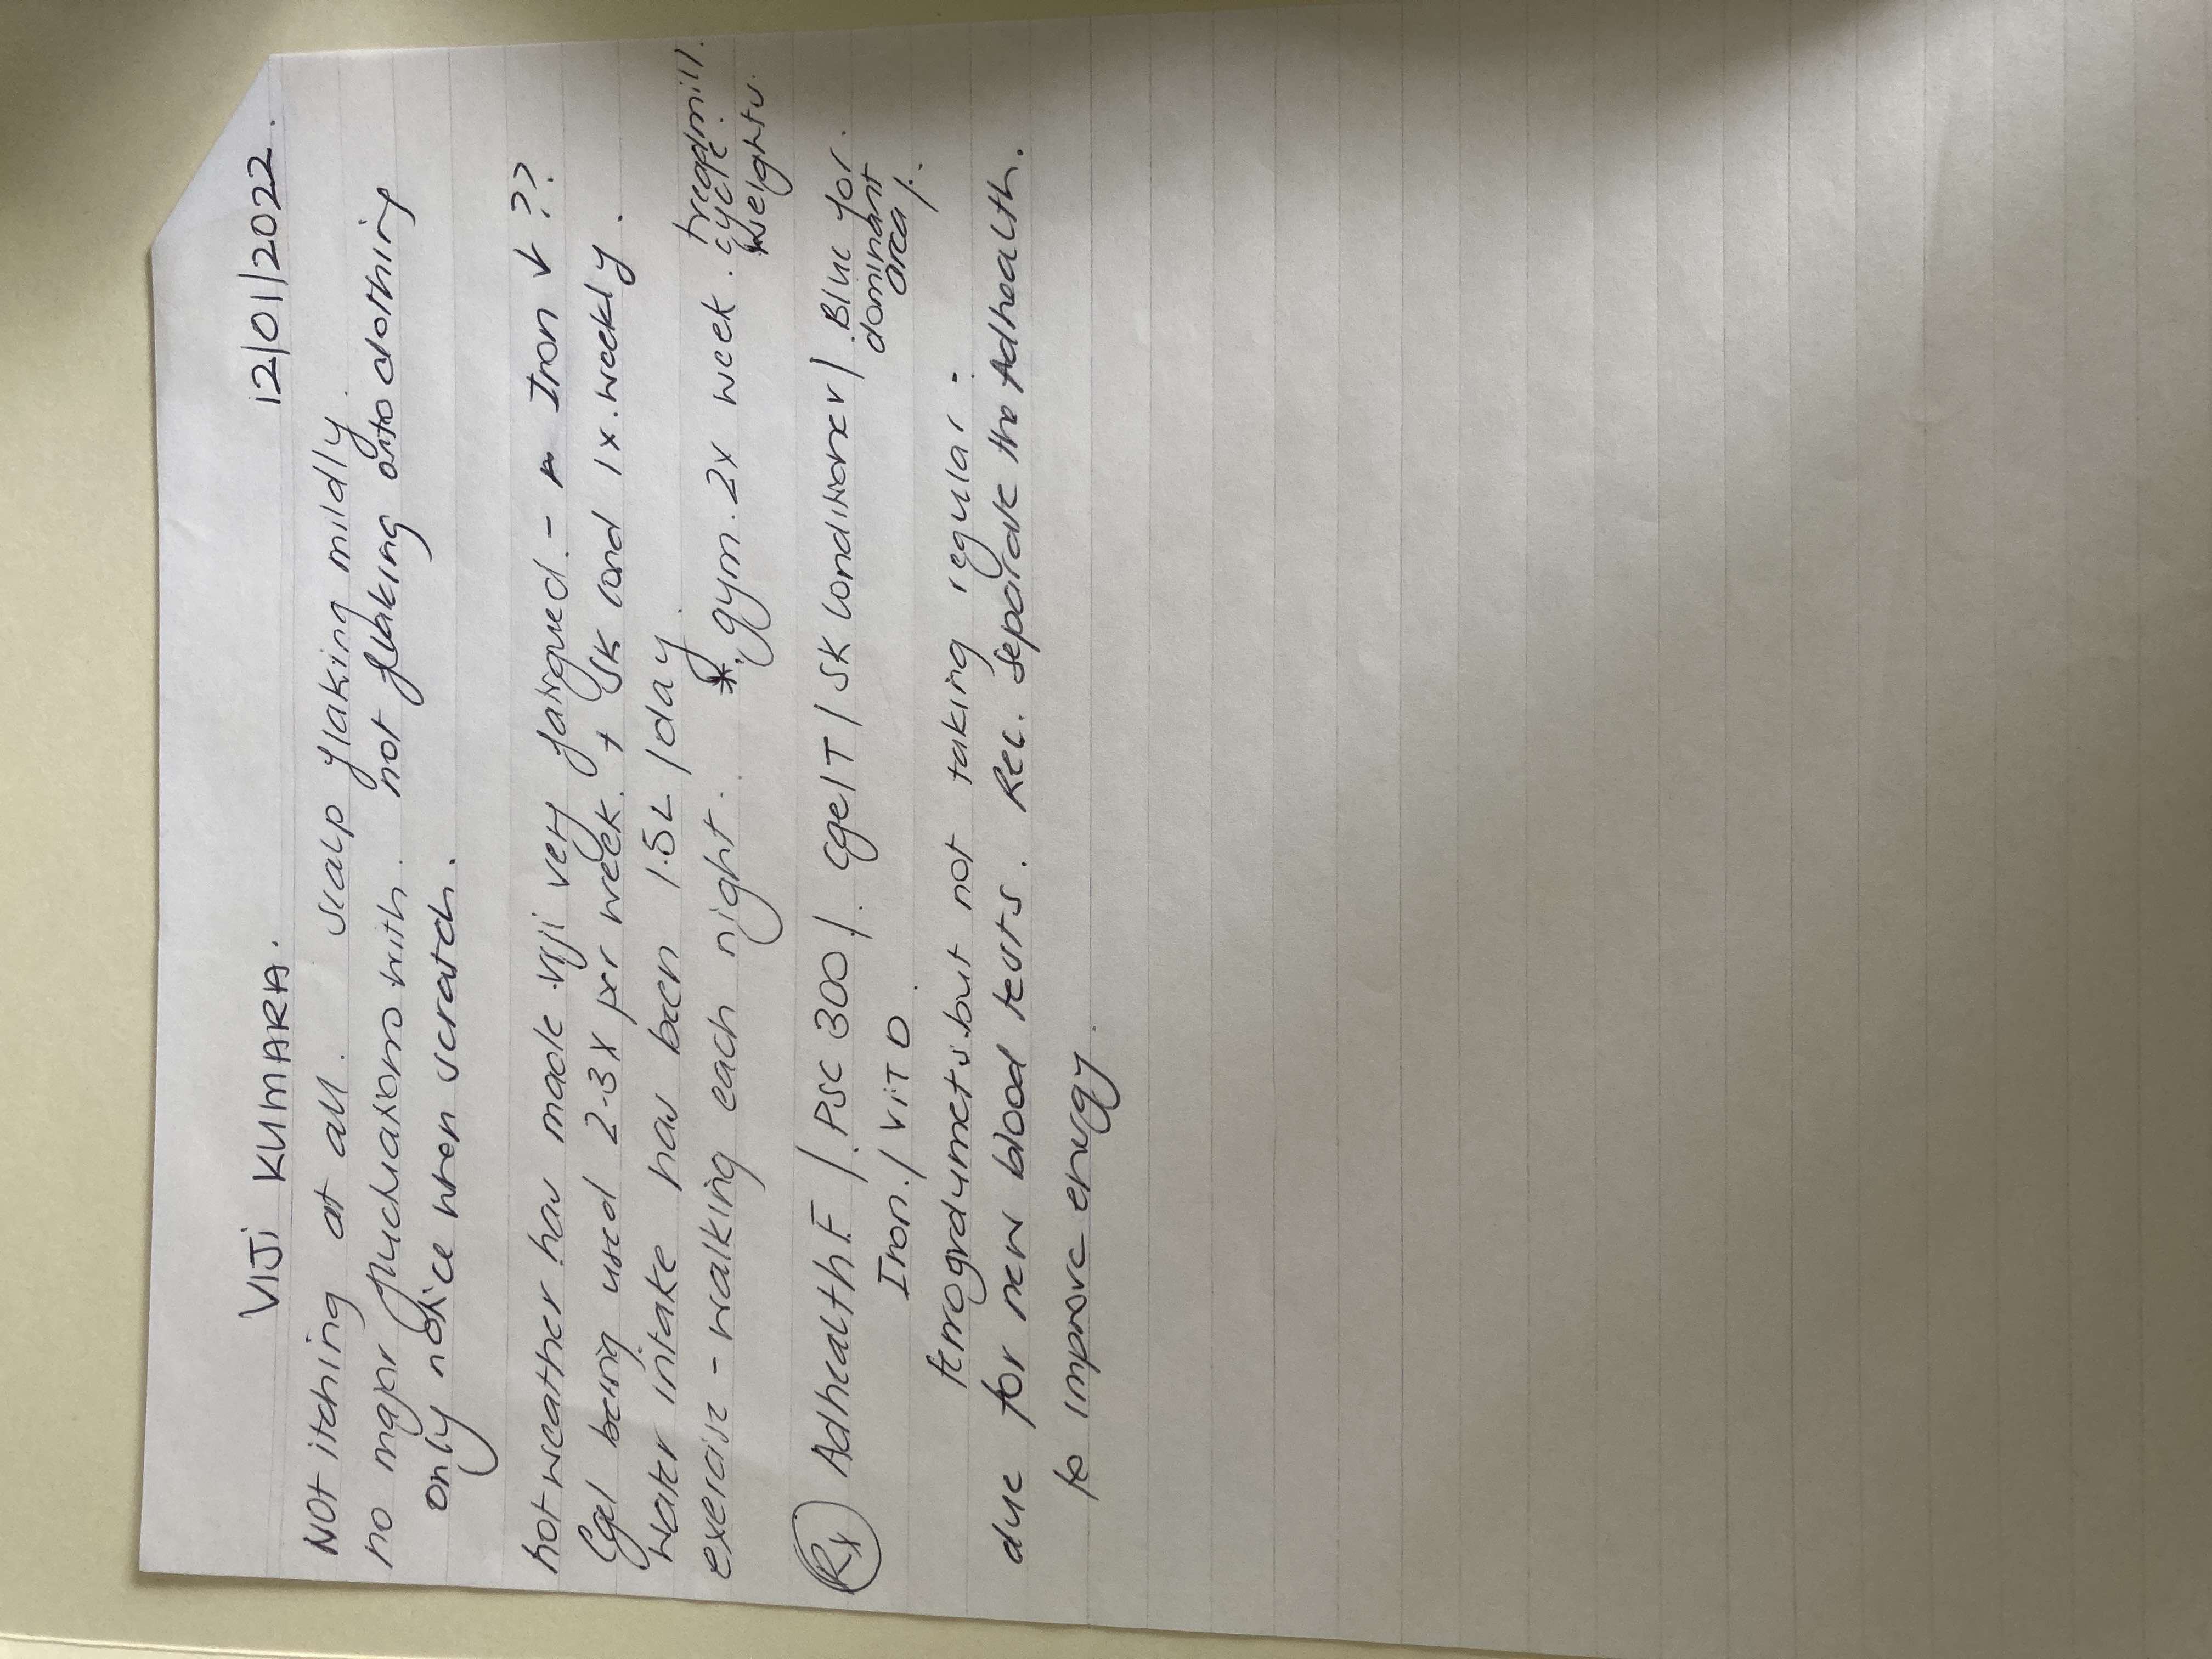 VIJI KUMARA. 12/01/2022.
NOt itching at all. scalp flaking mildly.
no major fluctuations with. not flaking onto clothing
only notice when scratch.
hot weather has made viji very fatigued. - Iron ↓ ??
Cgel being used 2-3x per week. + SK cond 1x weekly.
water intake has been 1.5L /day.
exercise - walking each night. * gym. 2x week. treadmill. cycle. weights.
Rx AdhealthF /. PSC 300 /. CgelT / SK Conditioner /. Blue for dominant area /.
Iron. / Vit D.
ferrogradumets. but not taking regular -
due for new blood tests. Rec. separate the Adhealth.
to improve energy.